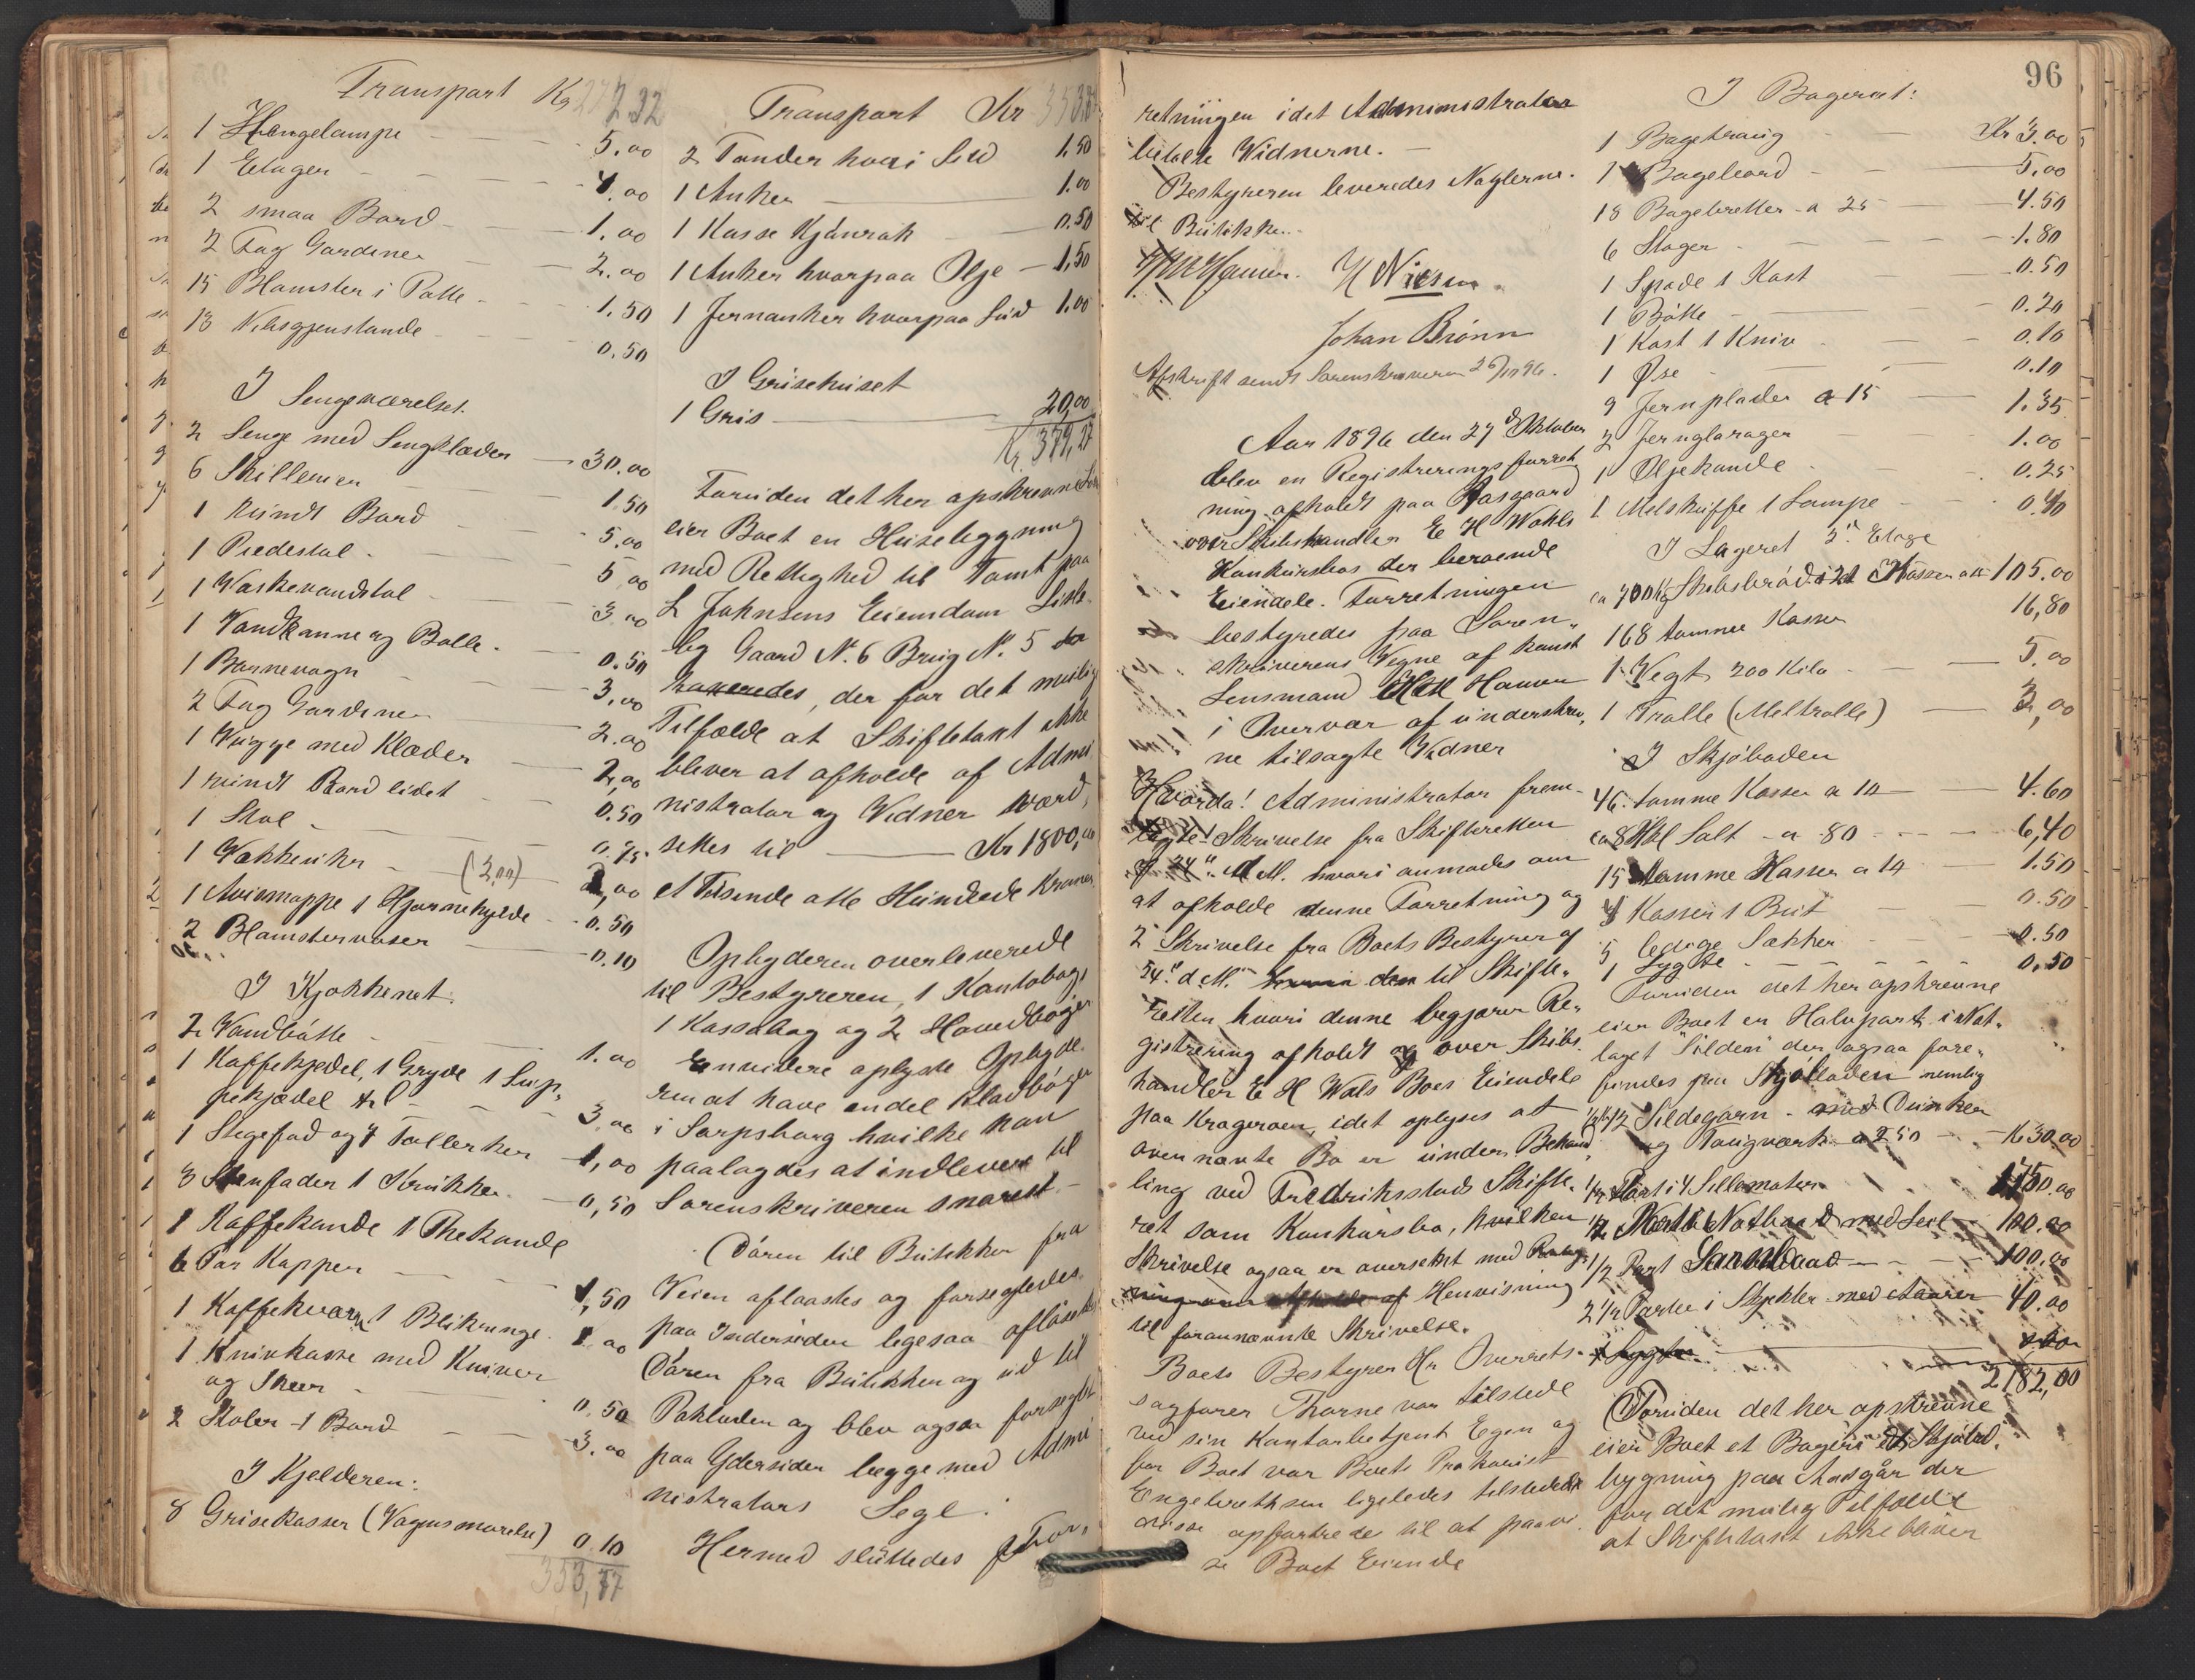 Transport Kr 277.32
1 Hængelampe 5.00
1 Etager 4.00
2 smaa Bord 1.00
2 Fag Gardiner 2.00
15 Blomster i Potte 1.50
13 Nibsgjenstande 0.50
I Sengeværelset.
2 Senge med Sengklæder 30.00
6 Skillerier 1.50
1 rundt Bord 5.00
1 Piedestal 5.00
1 Vaskevandstol 3.00
1 Vandkanne og Bolle 0.50
1 Barnevogn 3.00
2 Fag Gardiner 2.00
1 Vugge med Klæder 2,00
1 rundt Bord lidet 0.50
1 Stol 0.75
1 Vækkeuhr (3,00) 2,00
1 Avismappe 1 Hjørnehylde 0.50
2 Blomstervaser 0.10
I Kjøkkenet:
2 Vandbøtte 1.00
1 Kaffekjedel, 1 Gryde 1 Sup-
pekjedel 3,00
1 Stegefad og 7 Tallerker 1,00
3 Stenfader 1 Krukke 0,50
1 Kaffekande 1 Thekande
6 Par Kopper 1,50
1 Kaffekværn 1 Blikspinge 1.00
1 Knivkasse med Kniver
og Skeer 0.50
2 Stoler 1 Bord 3.00
I Kjelderen:
8 Grisekasser (Vognsmørelse) 0.10
353,77
Transport Kr 353.77
2 Tønder hvori Sild 1.50
1 Anker 1.00
1 Kasse Kjønrøk 0.50
1 Anker hvorpaa Olje 1,50
1 Jernanker hvorpaa 1.00
I Grisehuset
1 Gris 20,00
Kr. 379,27
Foruden det her opskrevne
eier Boet en Husebygning
med Rettighed til Tomt paa
L Johnsens Eiendom Lisle-
by Gaard No. 6 Brug No. 5
taxeredes, der for det mulig
Tilfælde at Skiftetakt ikke
bliver at afholde af Admi
nistrator og Vidner værd-
settes til Kr 1800,00
et Tusinde otte Hundrede Kroner
Opbyderen overleverede
til Bestyreren, 1 Kontobog,
1 Kassabog og 2 Hovedbøger
Envidere oplyste Opbyde-
ren at have endel Kladbøger
i Sarpsborg hvilke han
paalagdes at indlevere til
Sorenskriveren snarest.
Døren til Butikken fra
Veien aflaastes og forsegledes
paa Indersiden ligesaa aflaastes
Døren fra Butikken og ud til
Pakboden og blev ogsaa forseglet
paa Ydersiden begge med Admi
nistrators Segl.
Hermed sluttedes For-
96
retningen idet Administrator
betalte Vidnerne.
Bestyreren leveredes Nøglerne
til Butikken.
Johan Brønn
Afskrift sendt Sorenskriveren 26/10 96.
Aar 1896 den 27d Oktober
blev en Registreringsforret
ning afholdt paa Aasgaard
over Skibshandler E H Wahls
Konkursbos der beroende
Eiendele. Forretningen
bestyredes paa Soren-
skriverens Vegne af konst
Lensmand Hansen
i Overvær af underskrev-
ne tilsagte Vidner
Hvorda! Administrator frem-
lagte! Skrivelse fra Skifteretten
af 24de d.M. hvori anmodes om
at afholde denne Forretning og
2 Skrivelse fra Boets Bestyrer af
24de d.M. til Skifte-
retten hvori denne begjærer Re-
gistrering afholdt over Skibs
handler E H Wals Boes Eiendele
paa Kragerøen, idet oplyses at
ovennævnte Bo er under Behand-
ling ved Fredriksstads Skifte-
ret som Konkursbo, hvilken
Skrivelse ogsaa er oversettet med
Henvisning
til forannævnte Skrivelse.
Boets Bestyrer Hr Overrets-
sagfører Thorne var tilstede
ved sin Kontorbetjent Egen og
for Boet var Boets Prokurist
Engebrethsen ligeledes tilstede
disse opfortrede til at paavi-
se Boet Eiende
I Bageriet:
1 Bagetraug Kr 3.00
1 Bagebord 5,00
18 Bagebretter a 25 4.50
6 Stager 1.80
1 Spade 1 Kost 0.50
1 Bøtte 0.20
1 Kost 1 Kniv 0.10
1 Øse 0.10
9 Jernplader a 15 1.35
2 Jernglarager 1.00
1 Oljekande 0.25
1 Melskuffe 1 Lampe 0.40
I Lageret Etage
ca 700 Kg Skibsbrød i 21 Kasser 105.00
168 tomme Kasser 16,80
1 Vegt 200 Kilo 5,00
1 Tralle (Meltralle) 2,00
I Skjøboden
46 tomme Kasser a 10 4.60
ca 8 Hbl Salt a 80 6,40
15 tomme Kasser a 10 1.50
4 Kasser 1 But 0.50
5 ledige Sækker 0.50
1 Lygte 0.50
Foruden det her opskrevne
eier Boet en Halvpart i Not-
laget "Silden" der ogsaa fore-
findes paa Skjøboden nemlig
1/2 Sildegarn Dunker
og Tougværk a 250 Kr 30.00
1/2 Part i 4 Sillenoter 1750.00
1/2 Part i Notbaad med Seil 100.00
1/2 Part Landbaad 100,00
2 1/2 Parter i Skjekter med Aarer 40.00
1 Lygte
2182,00
Foruden det her opskrevne
eier Boet et Bageri et Skjøbod.
bygning paa Aasgår der
for det mulig Tilfælde
at Skiftetaxt ikke bliver